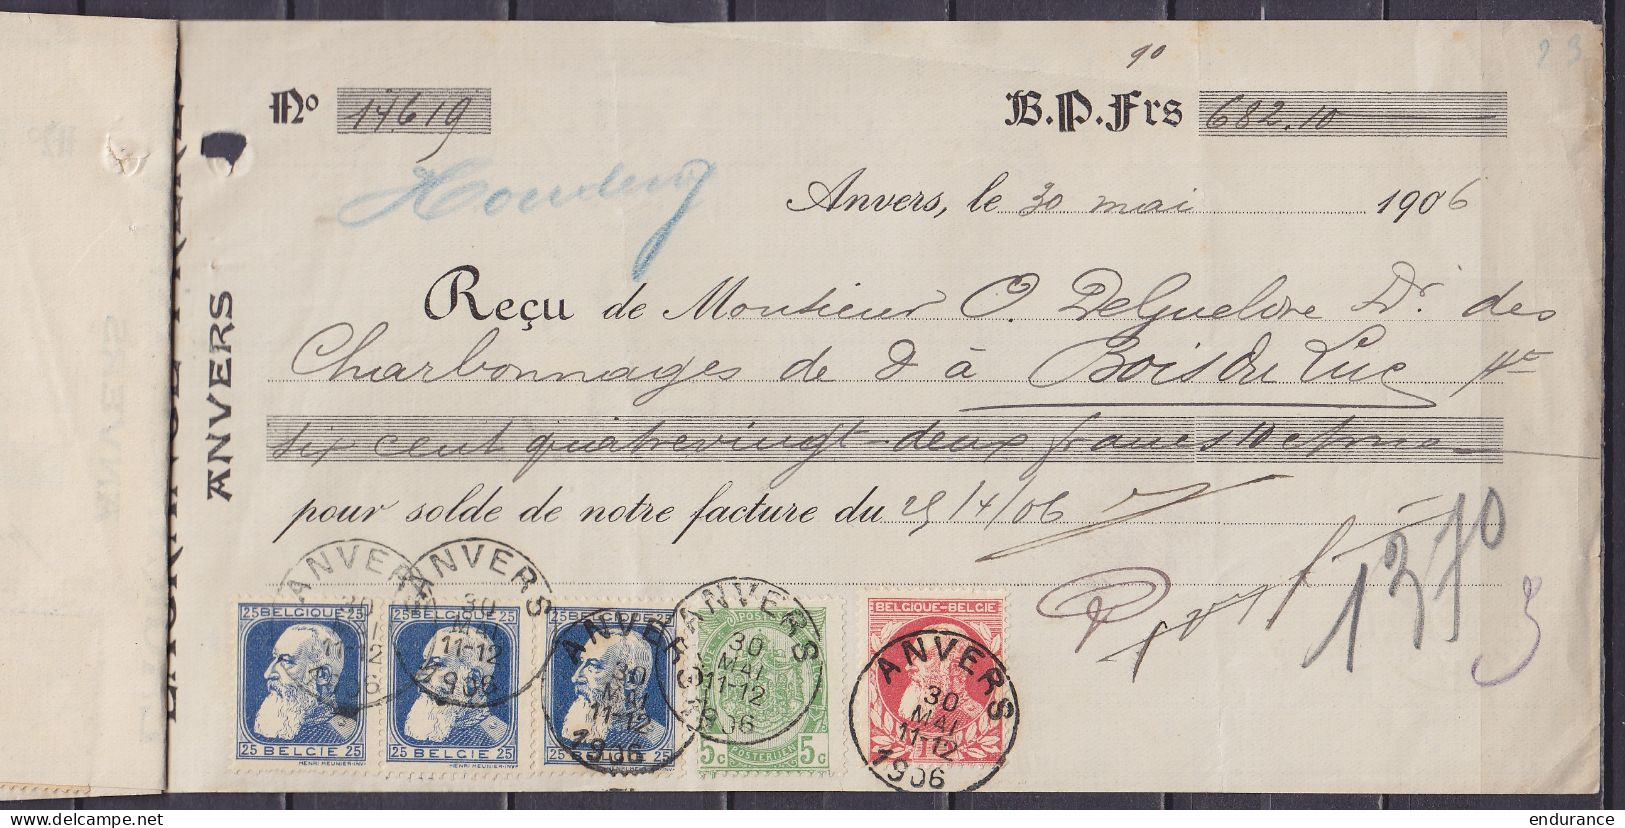 90
23
Nº 17619 B.P.Frs 682.10
Houdeng
Anvers, le 30 mai 1906
Reçu de Monsieur O. DeGueldre Dr. des
Charbonnages de & à Bois du Luc
six cent quatrevingt-deux francs 10 ctmes
pour solde de notre facture du 25/4/06
ANVERS
ANVERS 30 MAI 11-12 1906
ANVERS 30 MAI 11-12 1906
ANVERS 30 MAI 11-12 1906
ANVERS 30 MAI 11-12 1906
ANVERS 30 MAI 11-12 1906
25 BELGIQUE 25
25 BELGIE 25
HENRI MEUNIER-INV
25 BELGIQUE 25
25 BELGIE 25
HENRI MEUNIER-INV
25 BELGIE 25
HENRI MEUNIER-INV
5c POSTERIJEN 5c
BELGIQUE-BELGIE
3
endurance